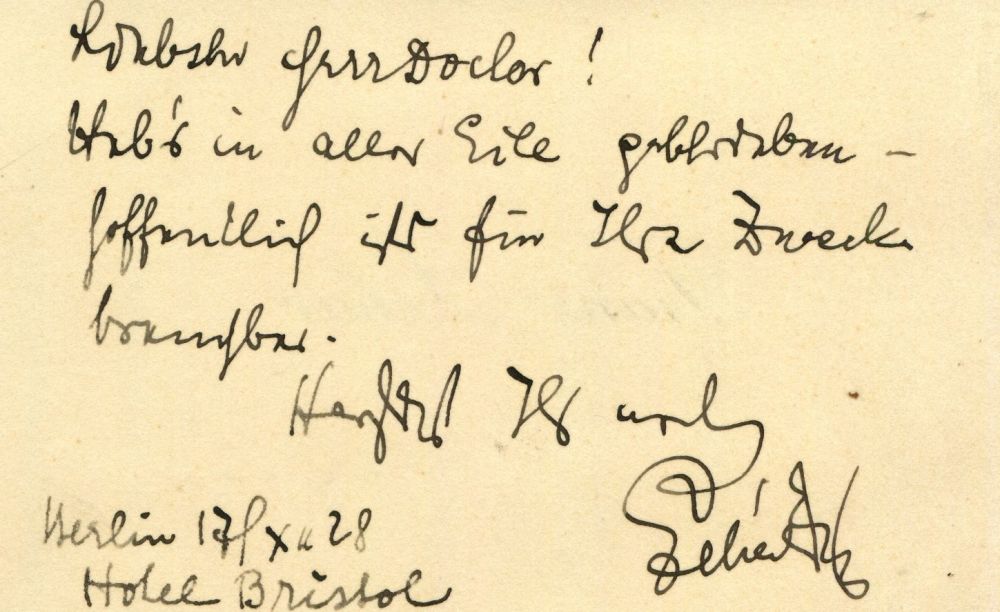 Liebster Herr Doctor!
Hab's in aller Eile geschrieben –
hoffentlich ist's für Ihre Zwecke
brauchbar.
Herzlichst Ihr
Berlin 17/ X 28
Hotel Bristol